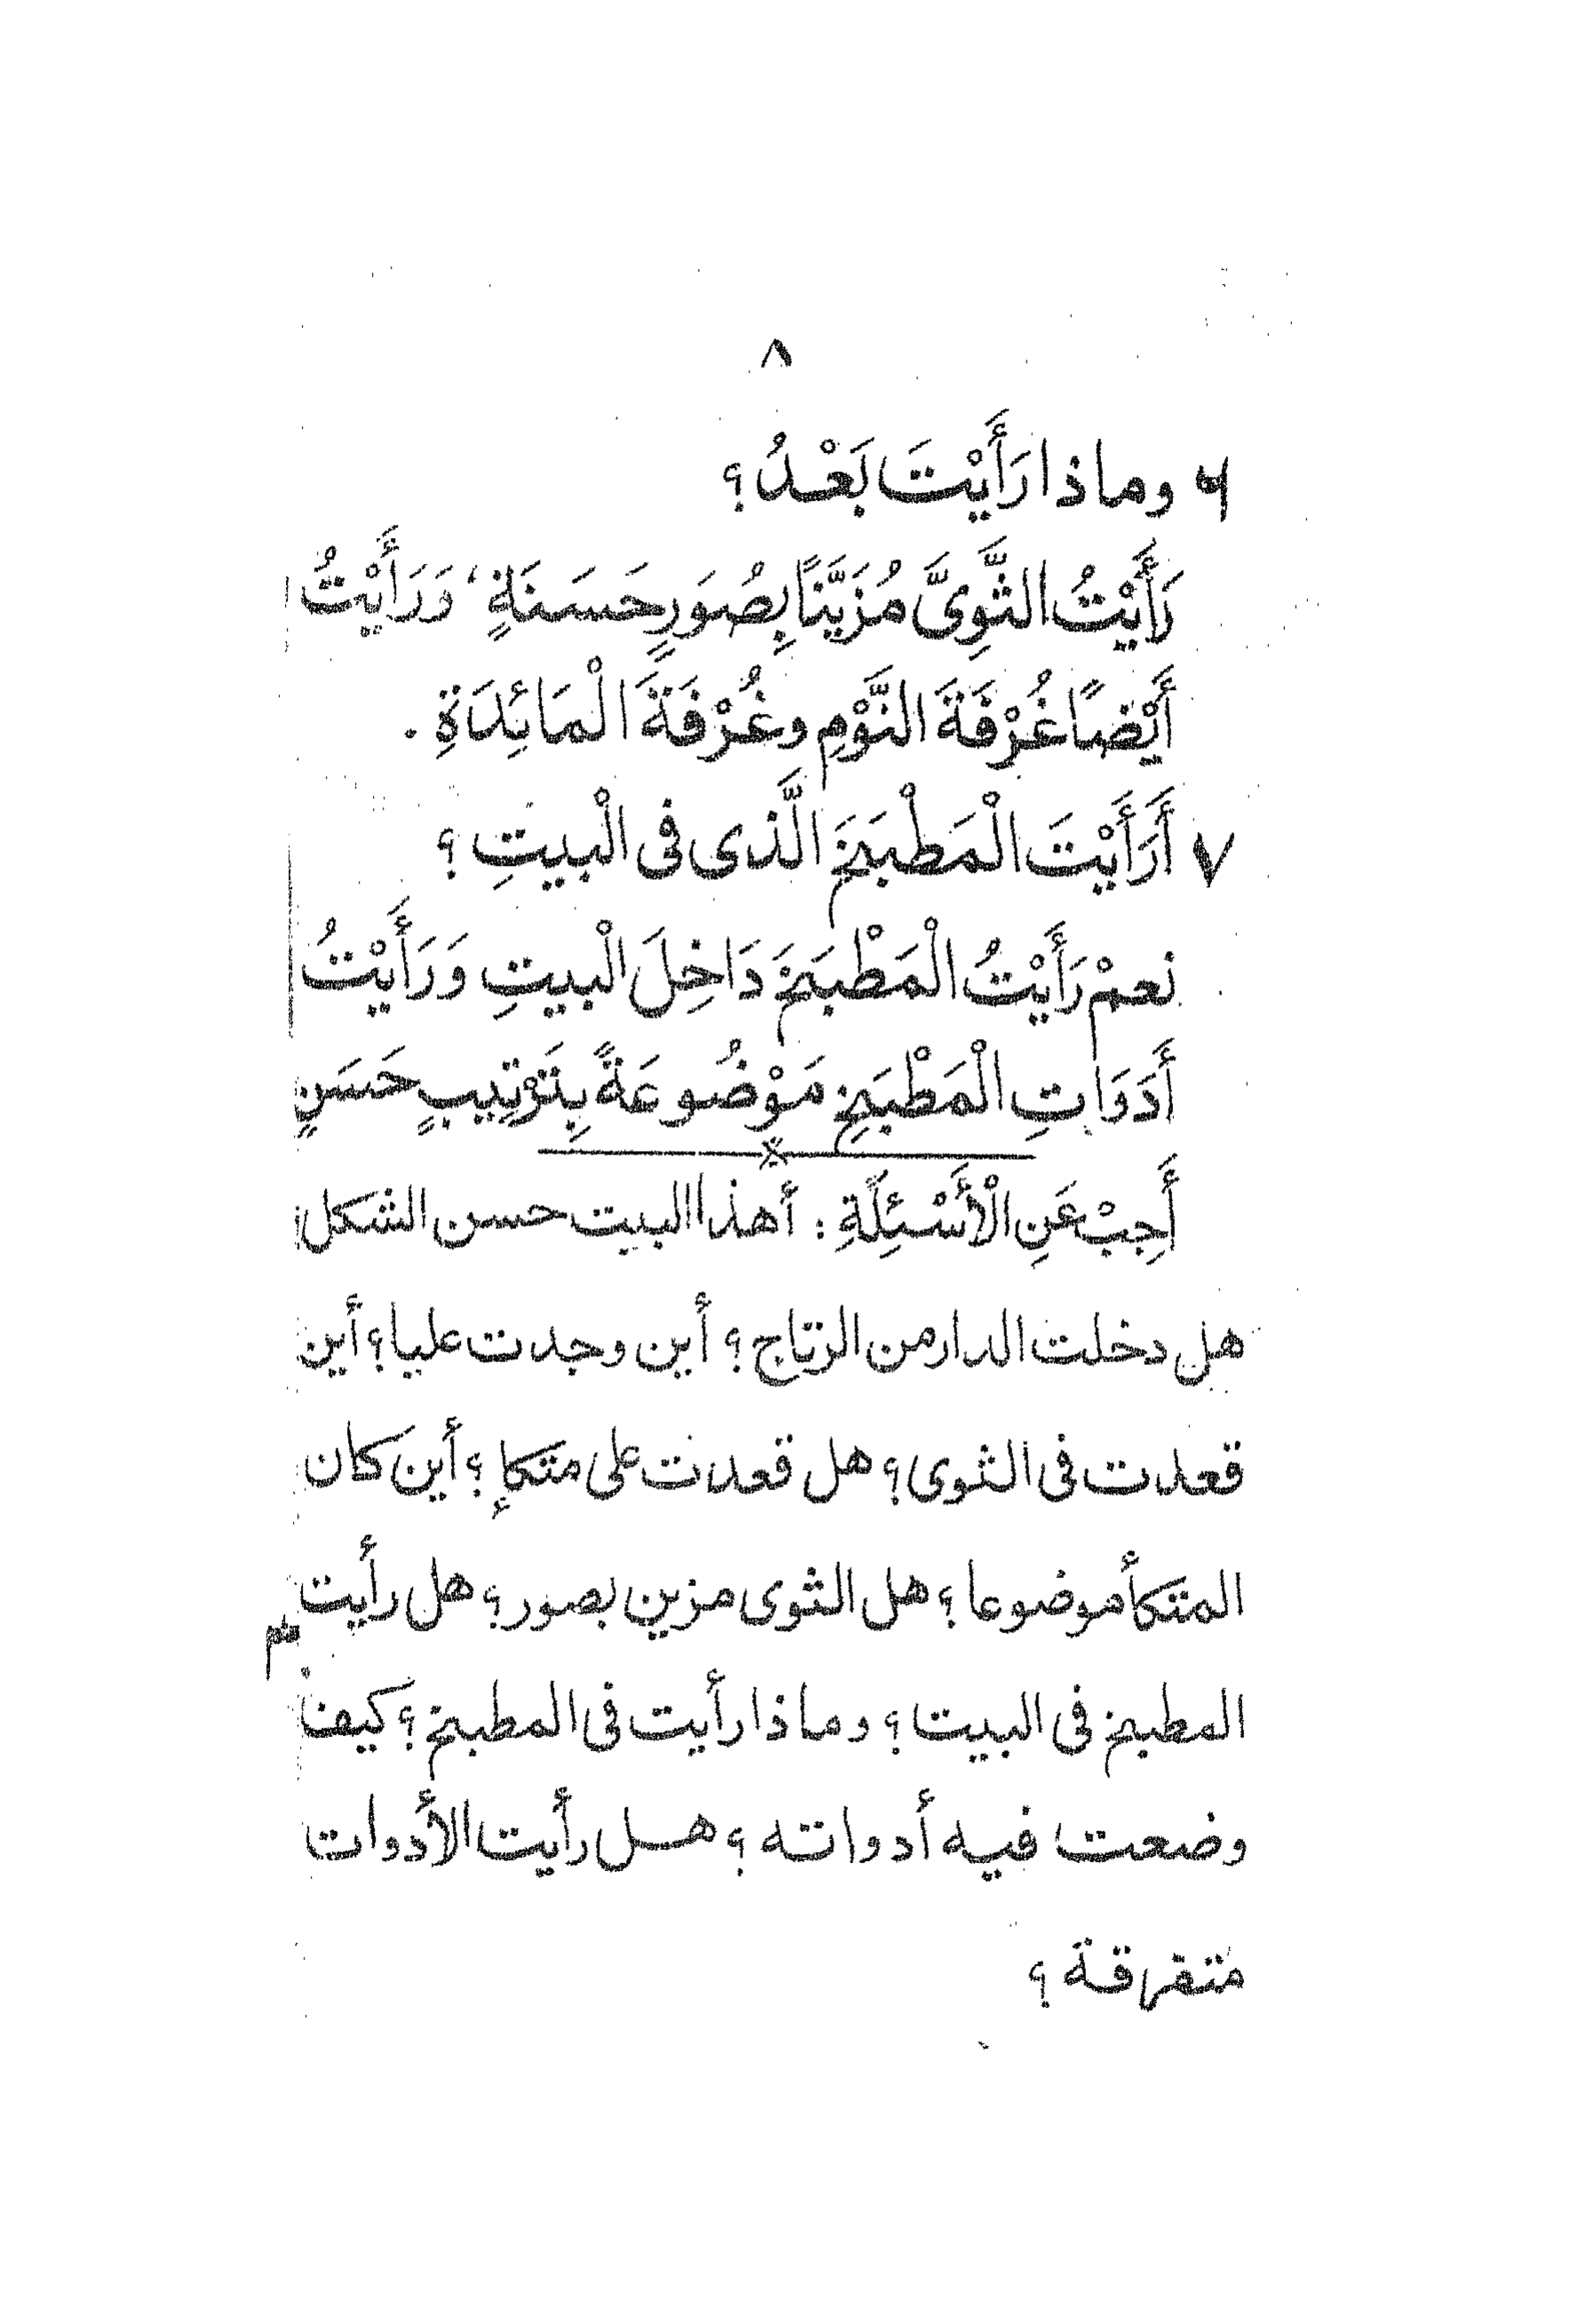 ٨
٦ وماذا رَأَيْتَ بَعْدُ؟
رَأَيْتُ الثَّوِىَّ مُزَيَّنًا بِصُوَرٍ حَسَنَةٍ، وَرَأَيْتُ
أَيْضًا غُرْفَةَ النَّوْمِ وغُرْفَةَ الْمَائِدَةِ.
٧ أَرَأَيْتَ الْمَطْبَخَ الَّذى فى الْبيتِ؟
نعمْ رَأَيْتُ الْمَطْبَخَ دَاخِلَ الْبيتِ وَرَأَيْتُ
أَدَوَاتِ الْمَطْبَخِ مَوْضُوعَةً بِتَرْتِيبٍ حَسَنٍ
أَجِبْ عَنِ الْأَسْئِلَةِ: أهذا البيت حسن الشكل
هل دخلت الدار من الرتاج؟ أين وجدت عليا؟ أين
قعدت فى الثوى؟ هل قعدت على متكإ؟ أين كان
المتكأ موضوعا؟ هل الثوى مزين بصور؟ هل رأيت
المطبخ فى البيت؟ وماذا رأيت فى المطبخ؟ كيف
وضعت فيه أدواته؟ هل رأيت الأدوات
متفرقة؟